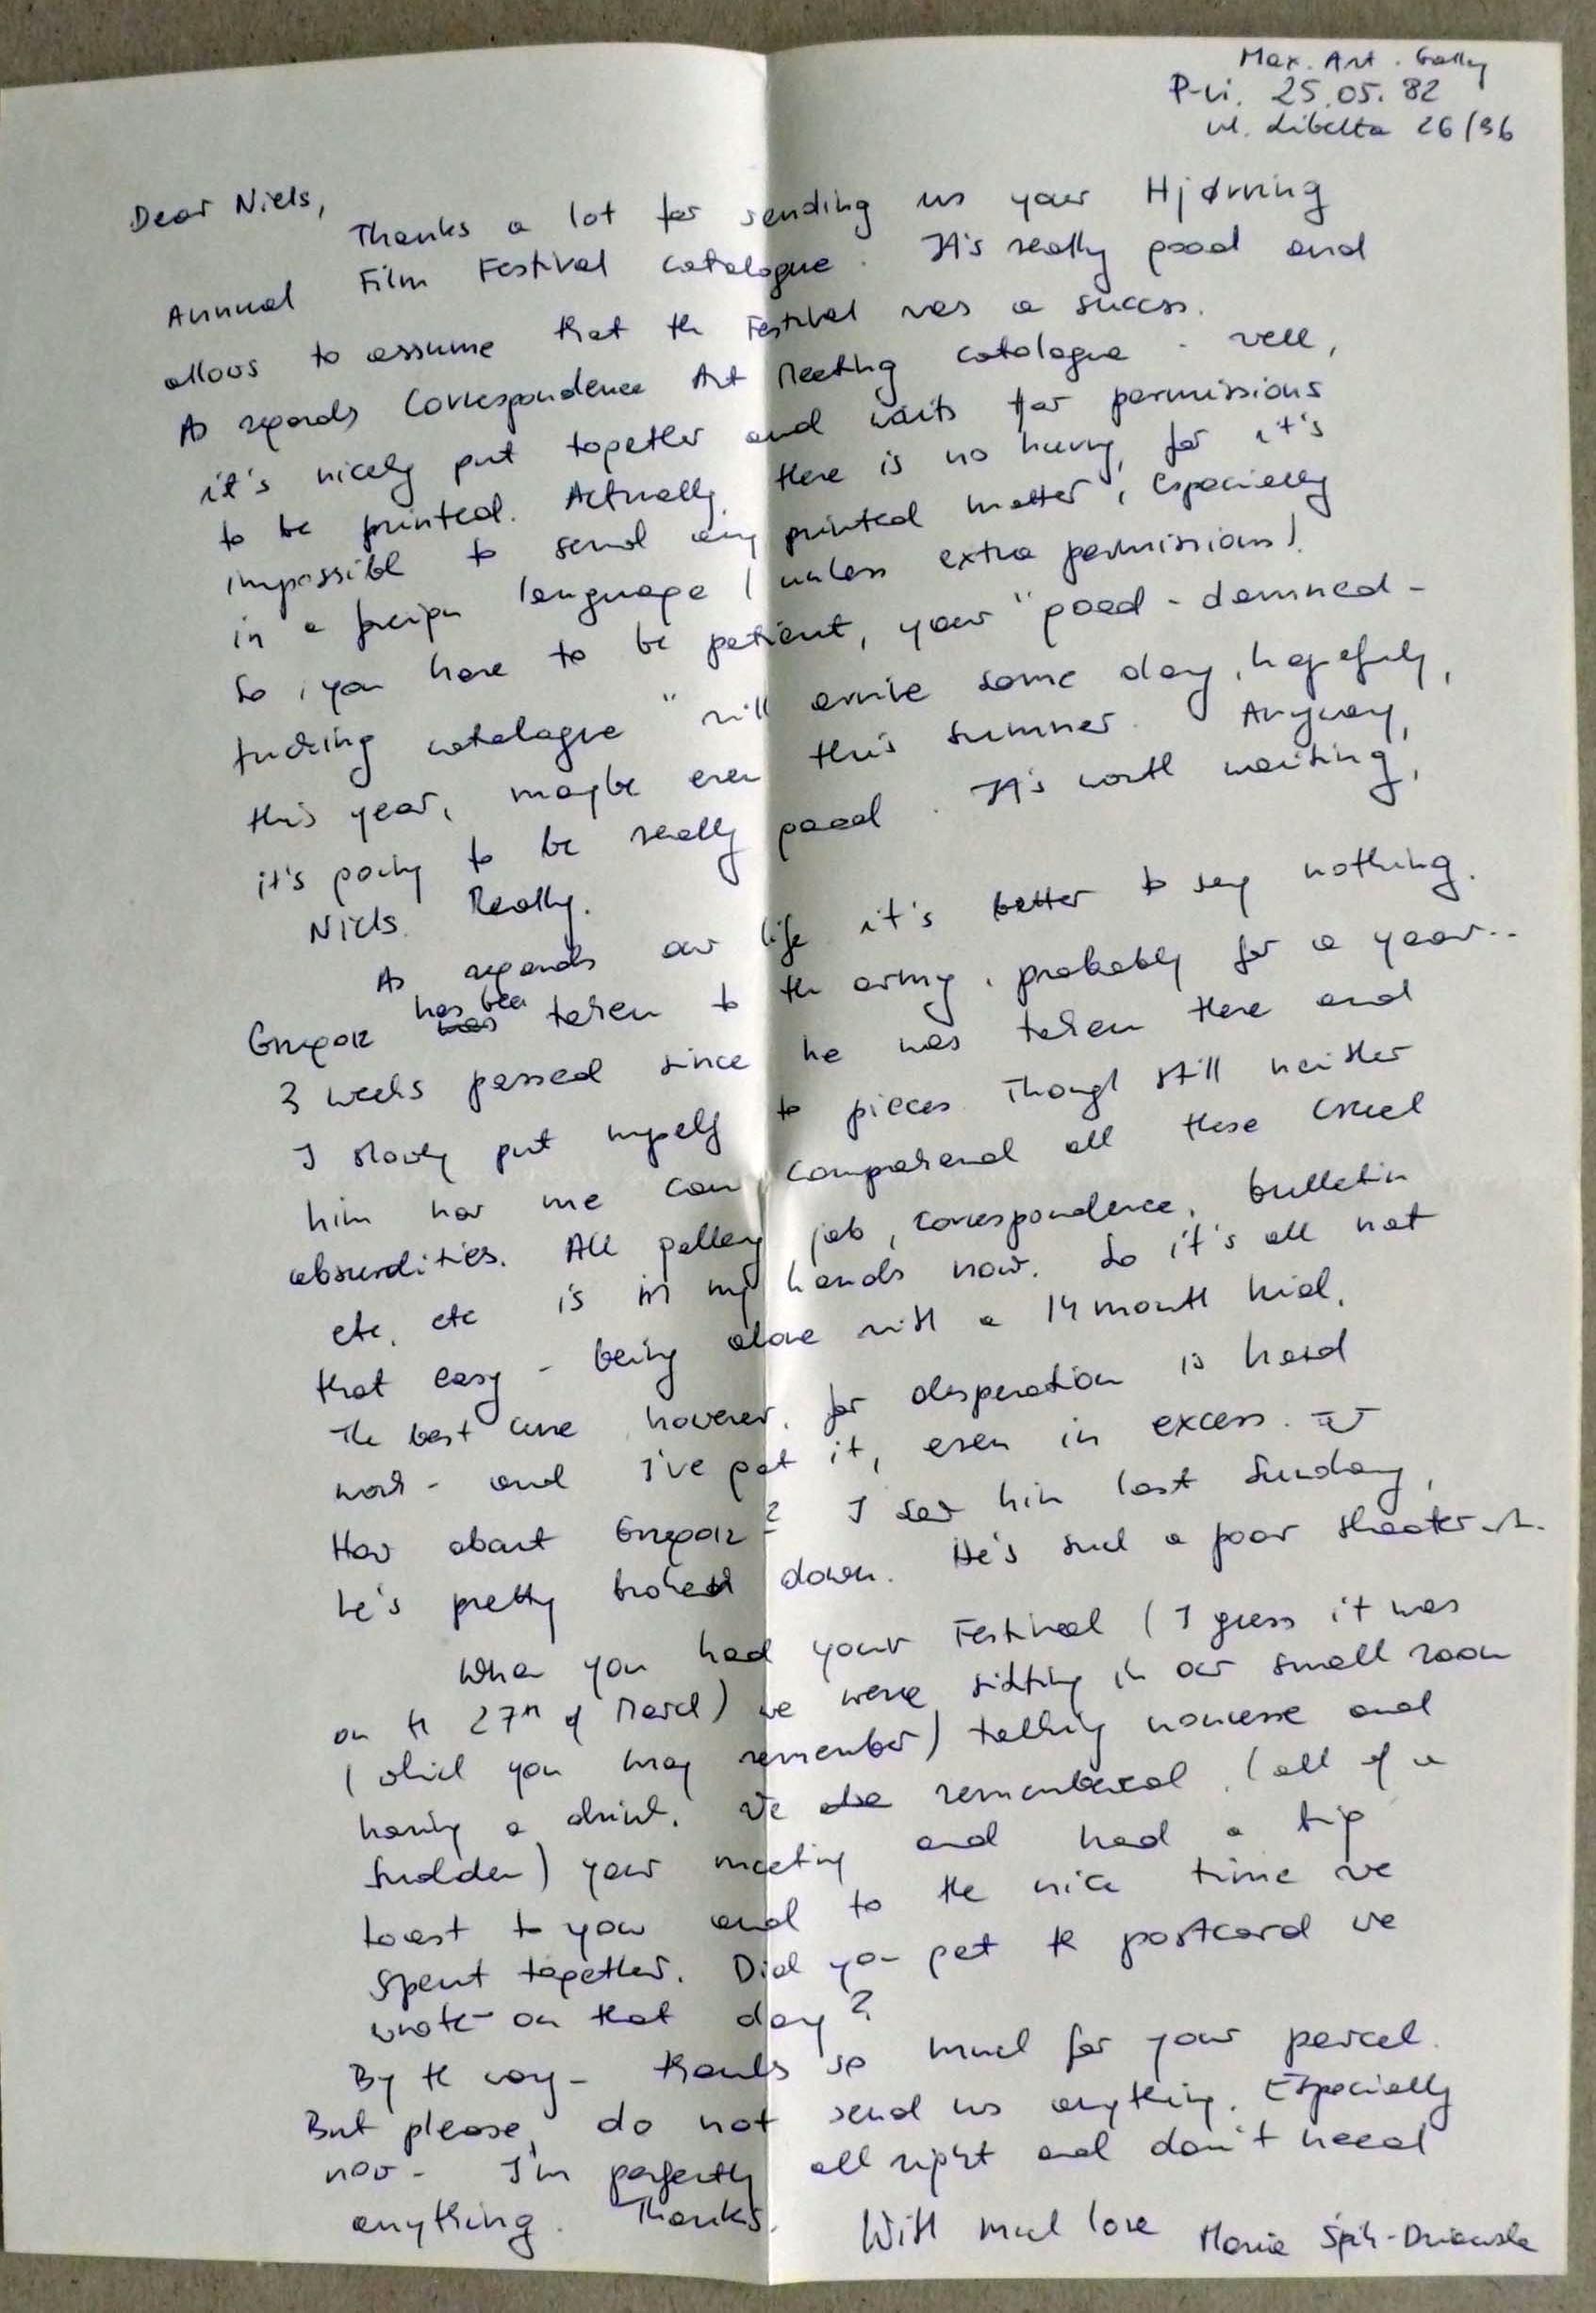 Max. Art. Gallry
P-ń. 25.05.82
ul. Libelta 26/96
Dear Niels,
Thanks a lot for sending us your Hjørring
Annual Film Festival catalogue. It's really good and
allows to assume that the Festival was a success.
As regards Correspondence Art Meeting catalogue - well,
it's nicely put together and waits for permissions
to be printed. Actually, there is no hurry, for it's
impossible to send any printed matter, especially
in a foreign language (unless extra permissions).
So, you have to be patient, your "good-damned-
fucking catalogue" will arrive some day, hopefuly,
this year, maybe even this summer. Anyway,
it's going to be really good. It's worth waiting,
Niels. Really.
As regards our life it's better to say nothing.
Grzegorz has been taken to the army, probably for a year..
3 weeks passed since he was taken there and
I slowly put myself to pieces. Though still neither
him nor me can comprehend all these cruel
absurdities. All gallery job, correspondence, bulletin
etc, etc is in my hands now. So it's all not
that easy - being alone with a 14 month kid.
The best cure, however, for desperation is hard
work - and I've got it, even in excess.
How about Grzegorz? I saw him last Sunday,
he's pretty broken down. He's such a poor shooter
When you had your Festival (I guess it was
on the 27th of March) we were sitting in our small room
(which you may remember) talking nonsense and
having a drink. We remembered (all of a
sudden) your meeting and had a big
toast to you and to the nice time we
spent together. Did you get the postcard we
wrote on that day?
By the way - thanks so much for your parcel.
But please, do not send us anything. Especially
now - I'm perfectly all right and don't need
anything. Thanks.
With much love Maria